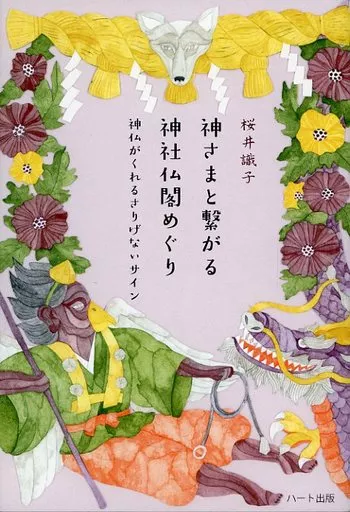 桜井識子
神さまと繋がる
神社仏閣めぐり
神仏がくれるさりげないサイン
ハート出版